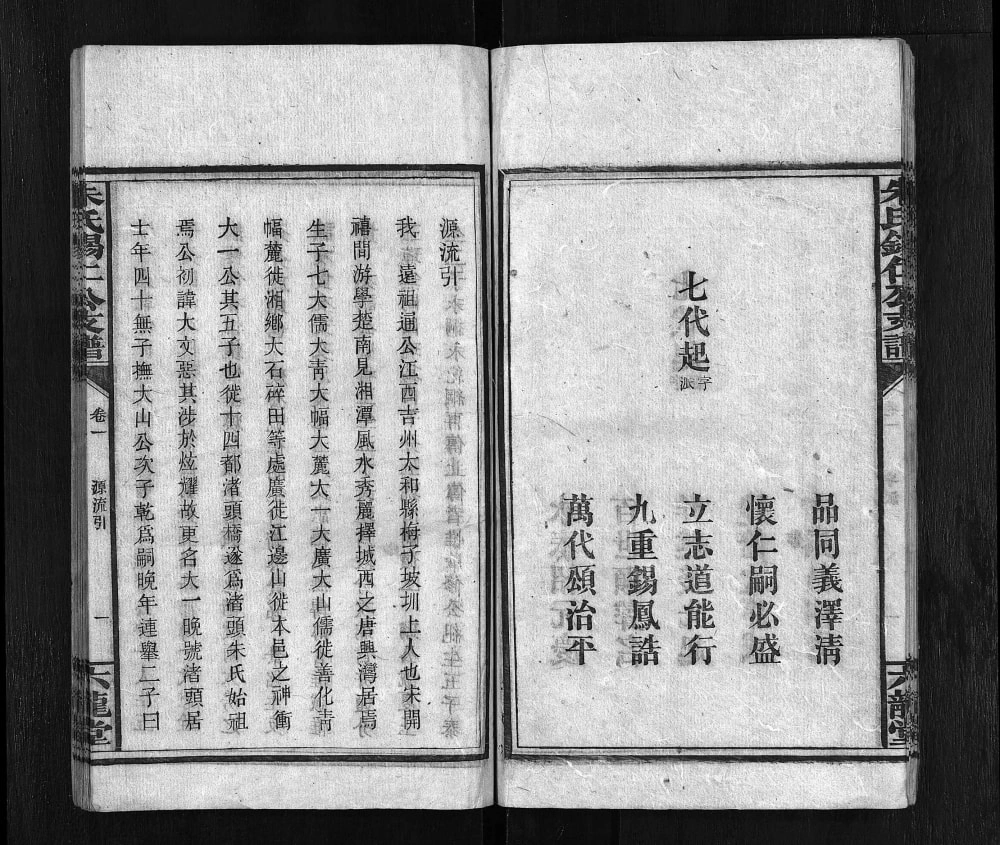 七代起字派
品同義澤清
懷仁嗣必盛
立志道能行
九重錫鳳誥
萬代頌治平
六龍堂
源流引
我　遠祖通公江西吉州太和縣梅子坡圳上人也宋開
禧間游學楚南見湘潭風水秀麗擇城西之唐興灣居焉
生子七大儒大青大幅大麓大一大廣大山儒徙善化青
幅麓徙湘鄉大石碎田等處廣徙江邊山徙本邑之神衝
大一公其五子也徙十四都渚頭橋遂爲渚頭朱氏始祖
焉公初諱大文惡其涉於炫耀故更名大一晚號渚頭居
士年四十無子撫大山公次子乾爲嗣晚年連舉二子曰
朱氏錫仁公支譜
卷一
源流引
一
六龍堂